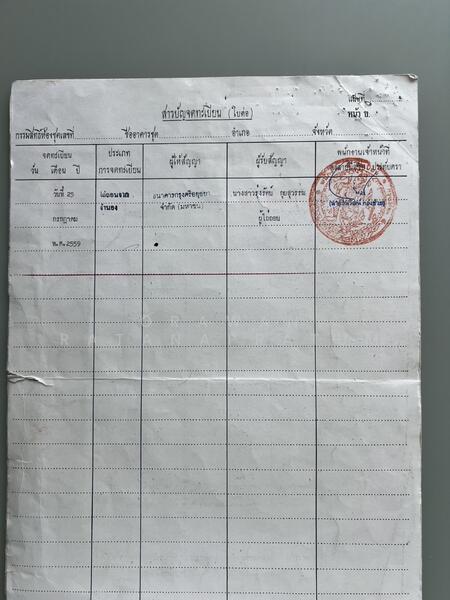 แผ่นที่
สารบัญจดทะเบียน (ใบต่อ)
หน้า ข.
กรรมสิทธิ์ห้องชุดเลขที่ ชื่ออาคารชุด อำเภอ จังหวัด
จดทะเบียน ประเภท ผู้ให้สัญญา ผู้รับสัญญา พนักงานเจ้าหน้าที่
วัน เดือน ปี การจดทะเบียน
วันที่ 25 ไถ่ถอนจาก ธนาคารกรุงศรีอยุธยา นางสาวรุ่งรัตน์
จำนอง จำกัด (มหาชน)
กรกฎาคม ผู้ไถ่ถอน
พ.ศ. 2559
RATANA